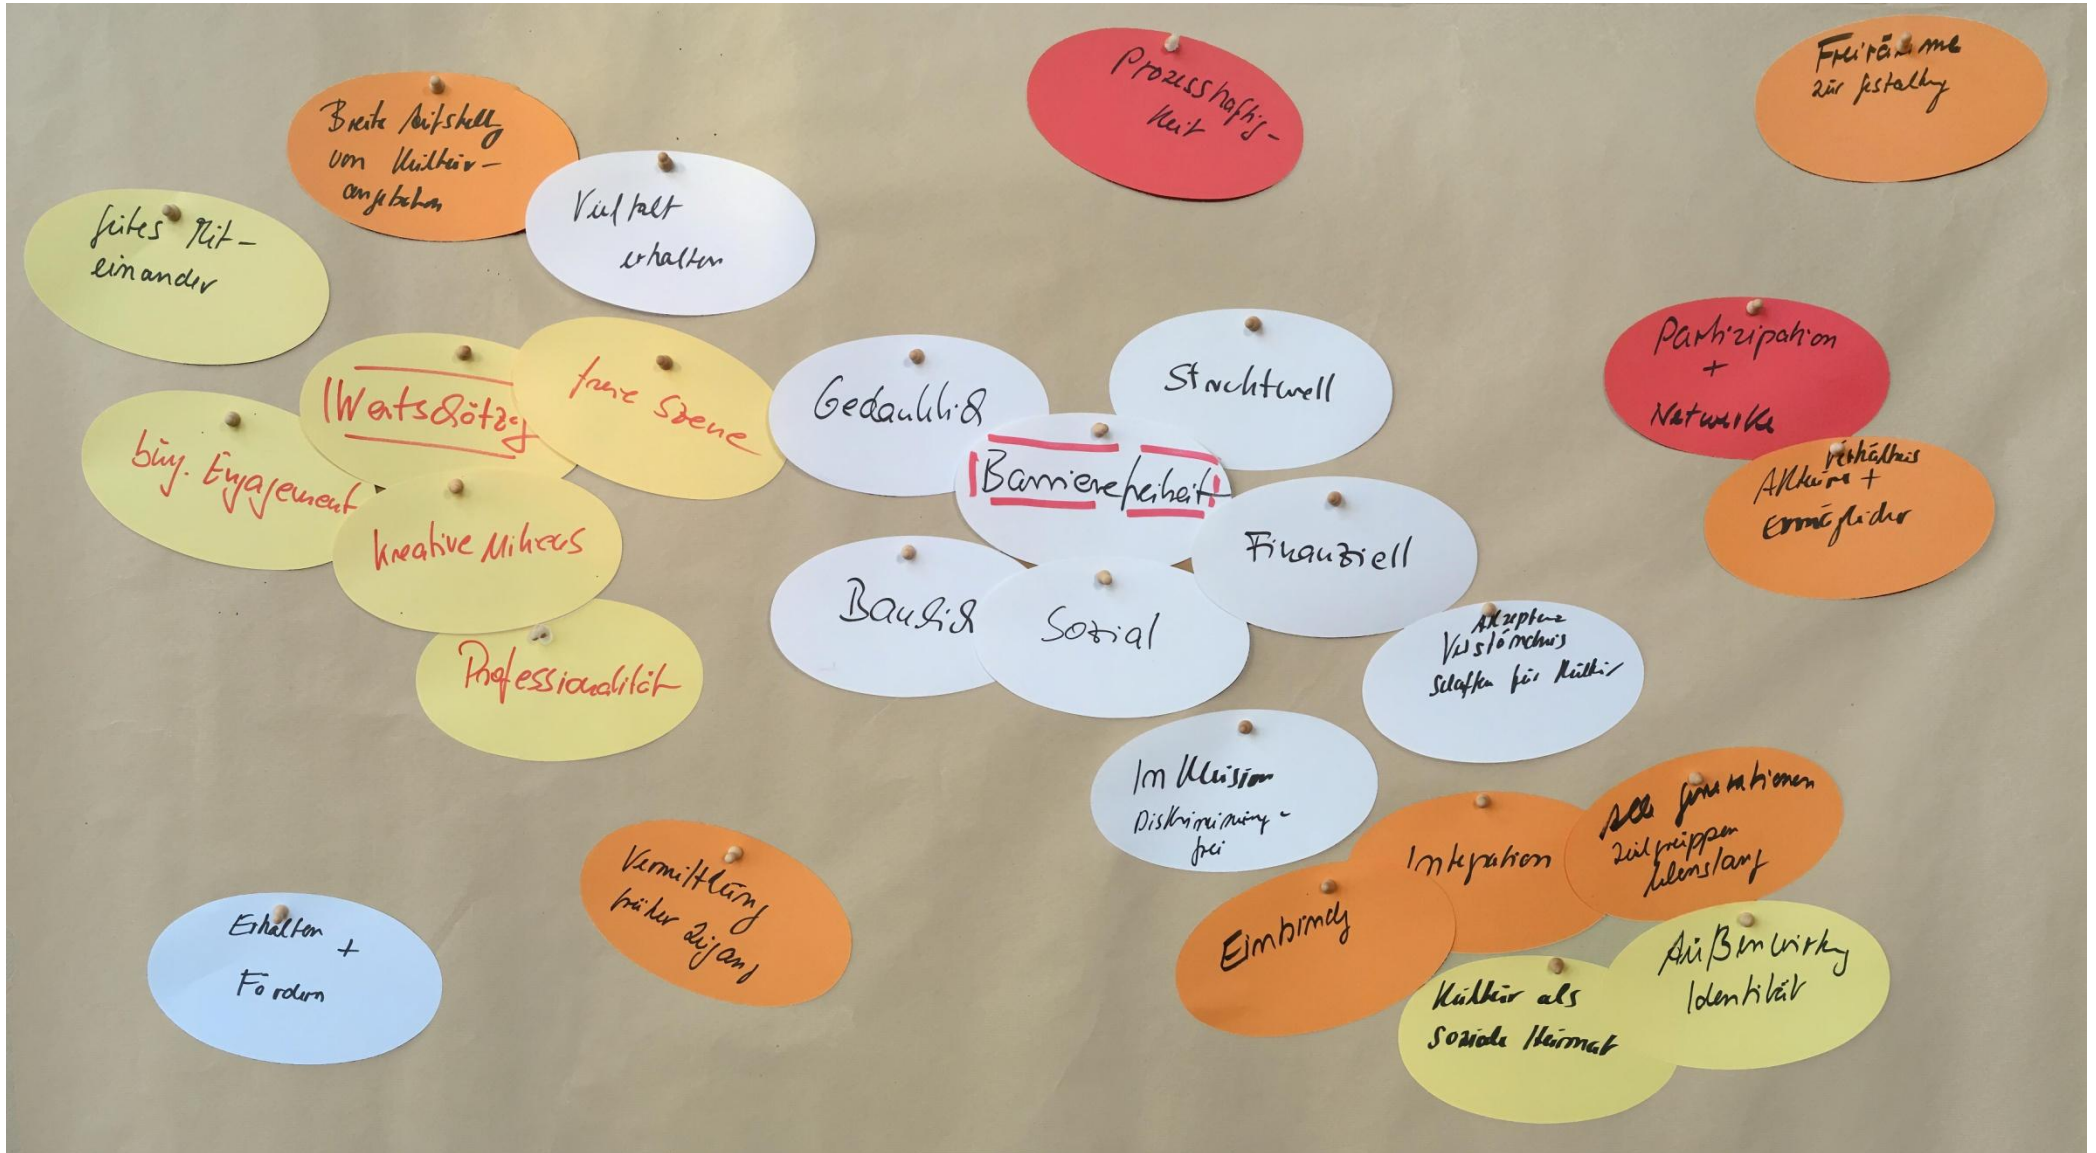 Breite Aufstellg
von Kultur-
angeboten
Vielfalt
erhalten
Gutes Mit-
einander
Wertschätzg
freie Szene
bürg. Engagement
kreative Milieus
Professionalität
Prozesshaftig-
keit
Freiräume
zur Gestaltung
Gedanklich
Strukturell
Barrierefreiheit!
Finanziell
Baulich
Sozial
Partizipation
+
Netwerke
Verhältnis
Akteure +
Ermöglicher
Akzeptanz
Verständnis
schaffen für Kultur
Inklusion
Diskriminierung-
frei
Integration
Alle Generationen
Zielgruppen
lebenslang
Einbindg
Außenwirkg
Identität
Kultur als
soziale Heimat
Vermittlung
früher Zugang
Erhalten +
Fördern